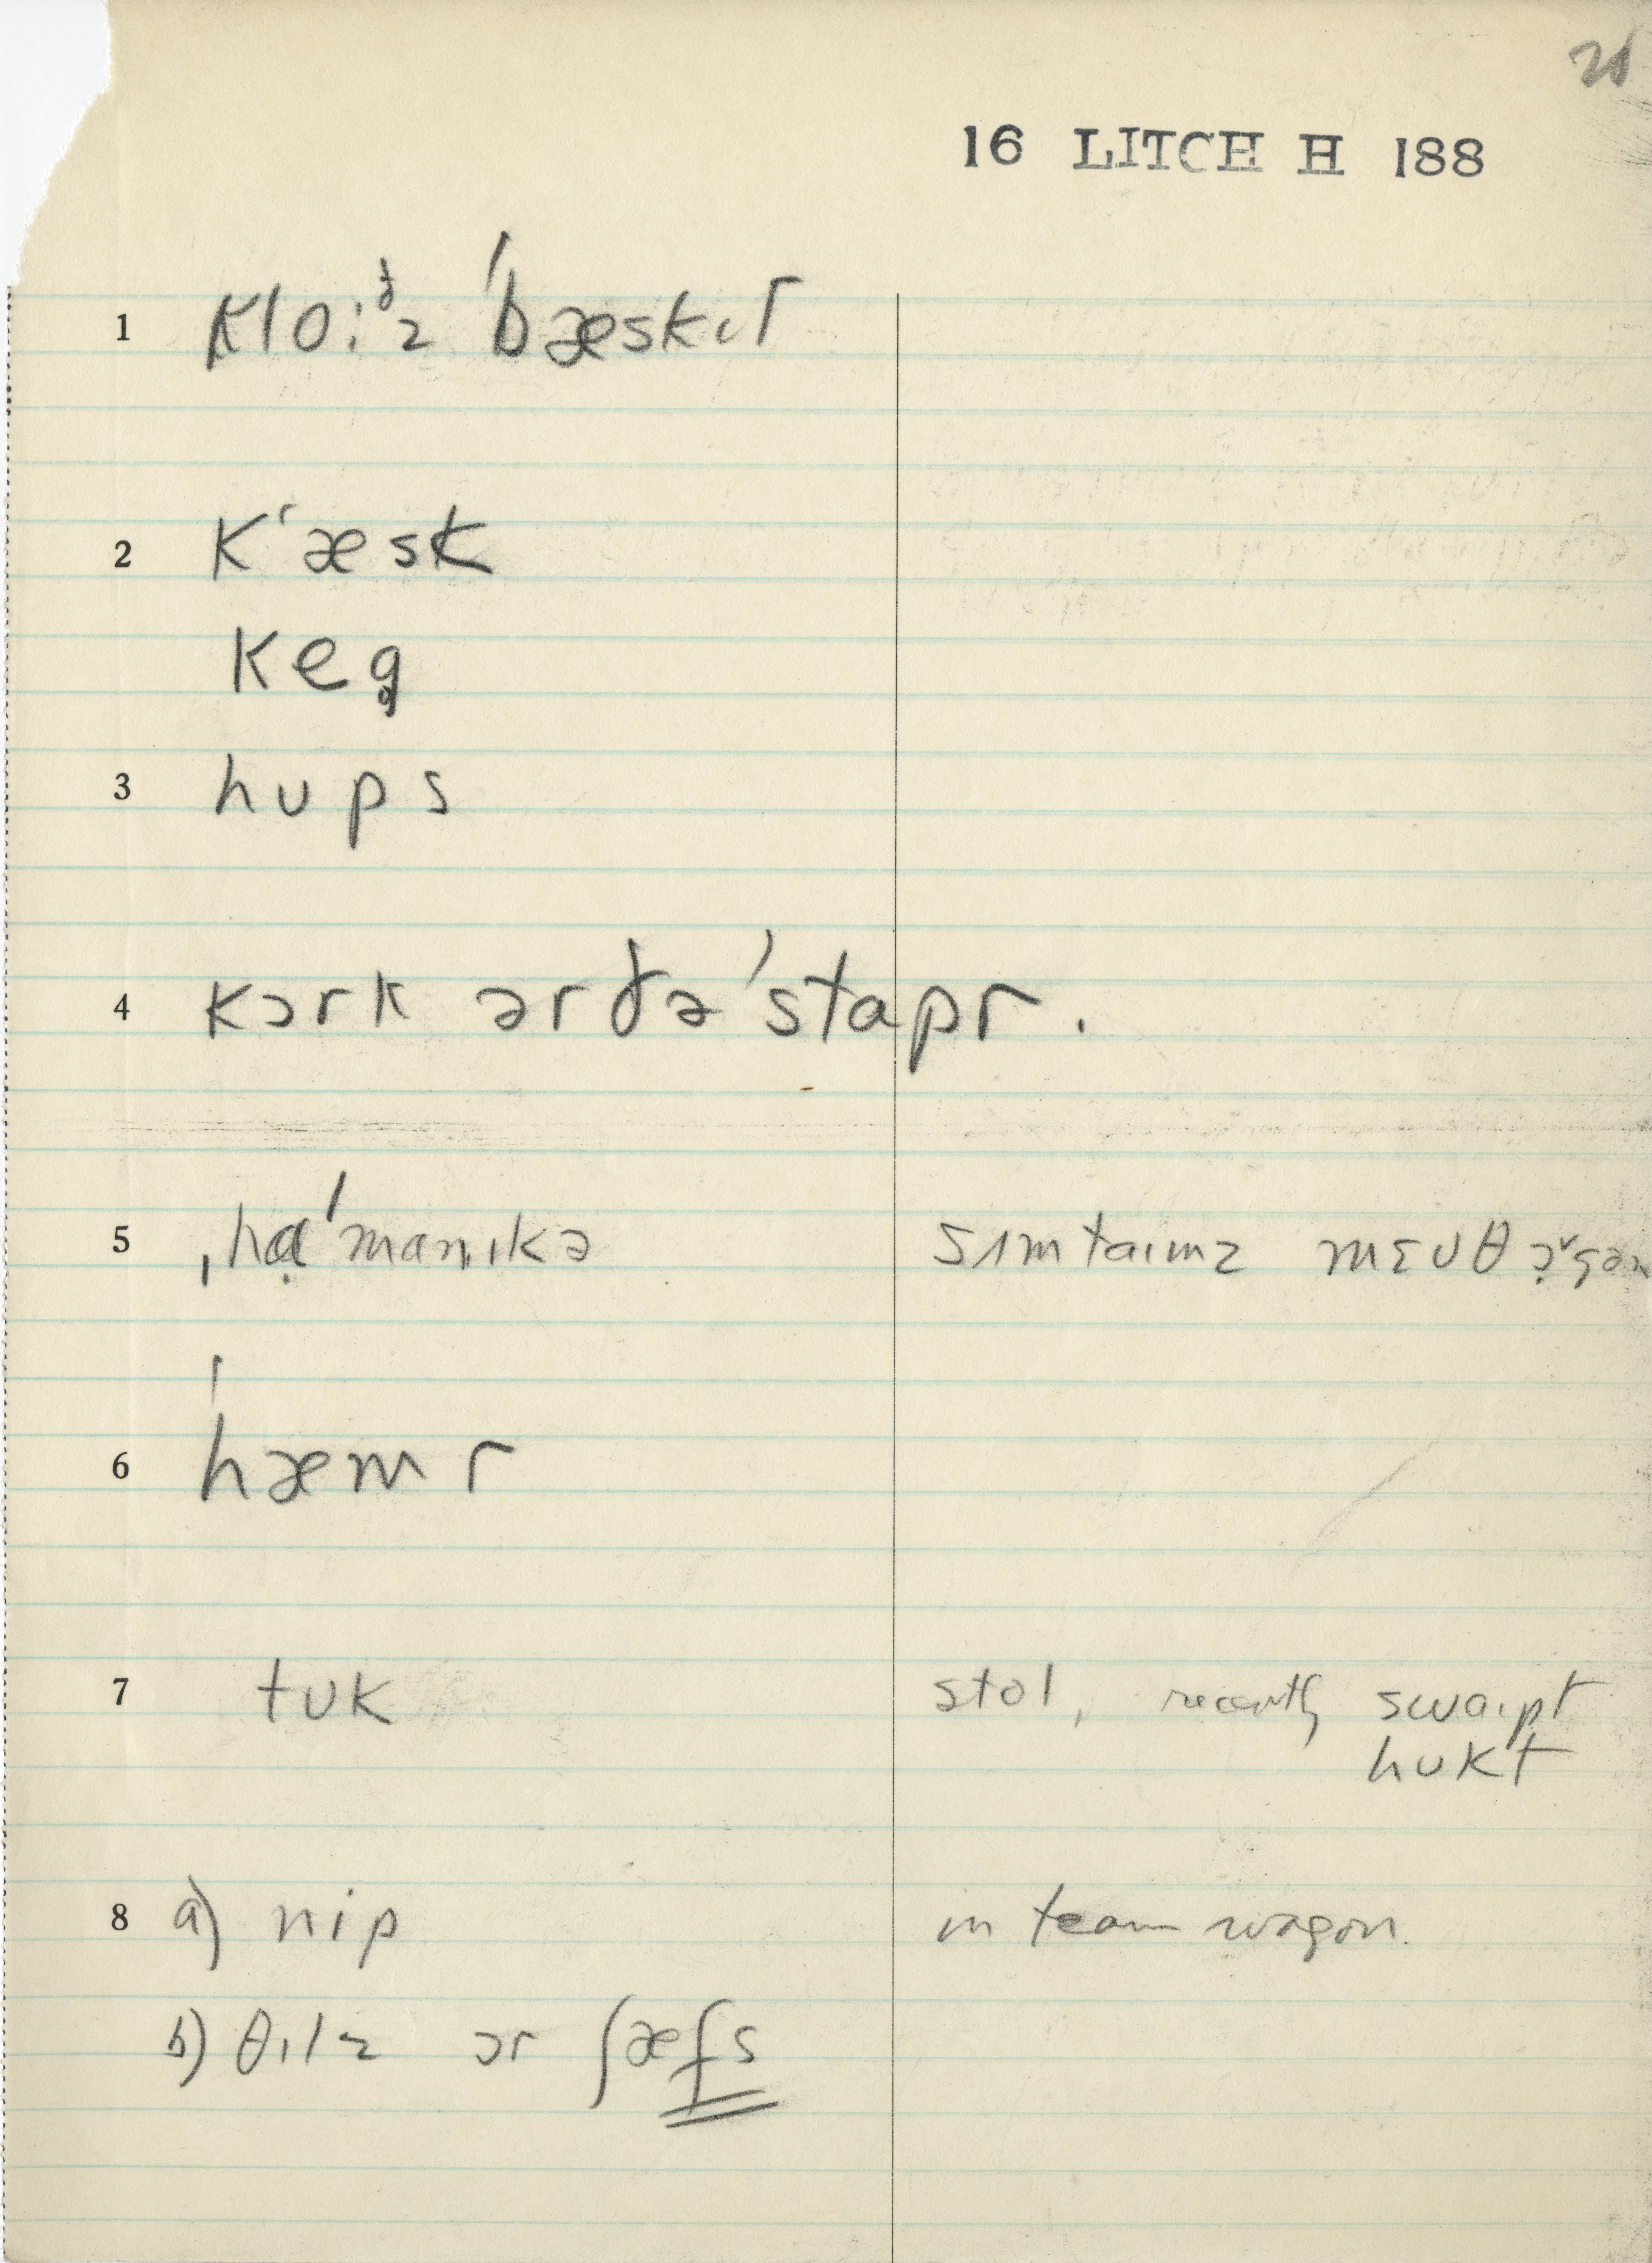 21
16 LITCH H 188
1 kloːᵟz ˈbæskɪt
2 kʻæsk
keg̥
3 hʊps
4 kɔrk ər ðə ˈstapr.
5 ˌhɑ̣ˈmanɪkə sʌmtaɪmz mɛʊθ
6 ˈhæmr
7 tʊk stol, recently swaɪpt
hʊkt
8 a) nip in team wagon.
b) θɪlz ɔr ʃæfs